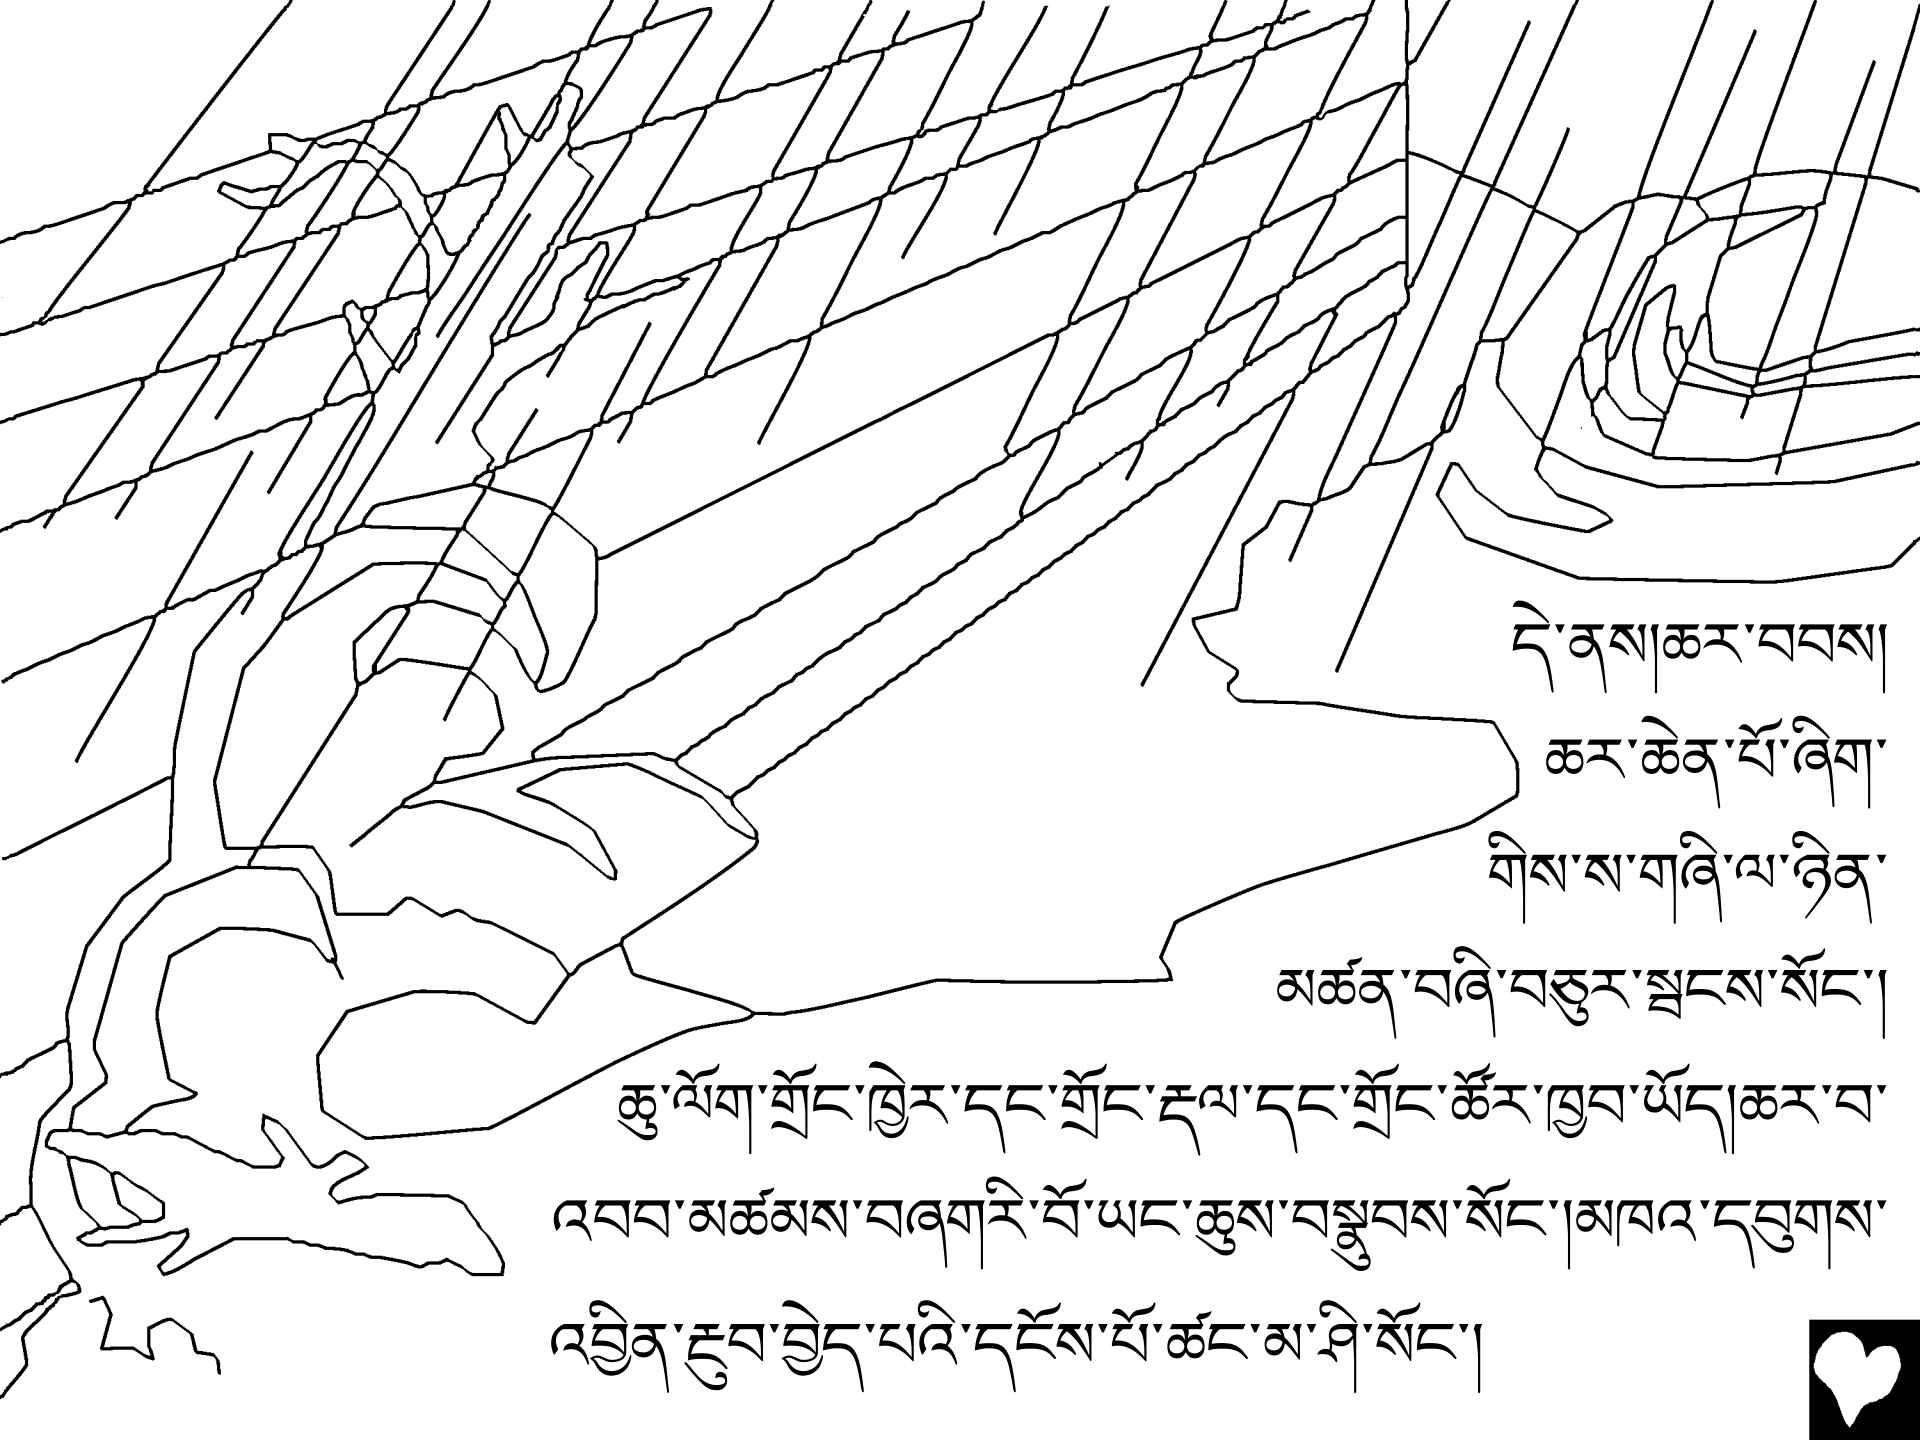 དེ་ནས།ཆར་བབས།
ཆར་ཆེན་པོ་ཞིག་
གིས་ས་གཞི་ལ་ཉིན་
མཚན་བཞི་བཅུར་སྦངས་སོང་།
ཆུ་ལོག་གྲོང་ཁྱེར་དང་གྲོང་རྡལ་དང་གྲོང་ཚོར་ཁྱབ་ཡོད།ཆར་བ་
འབབ་མཚམས་བཞགརི་བོ་ཡང་ཆུས་བསྣུབས་སོང་།མཁའ་དབུགས་
འབྱིན་རྔུབ་བྱེད་པའི་དངོས་པོ་ཚང་མ་ཤི་སོང་།